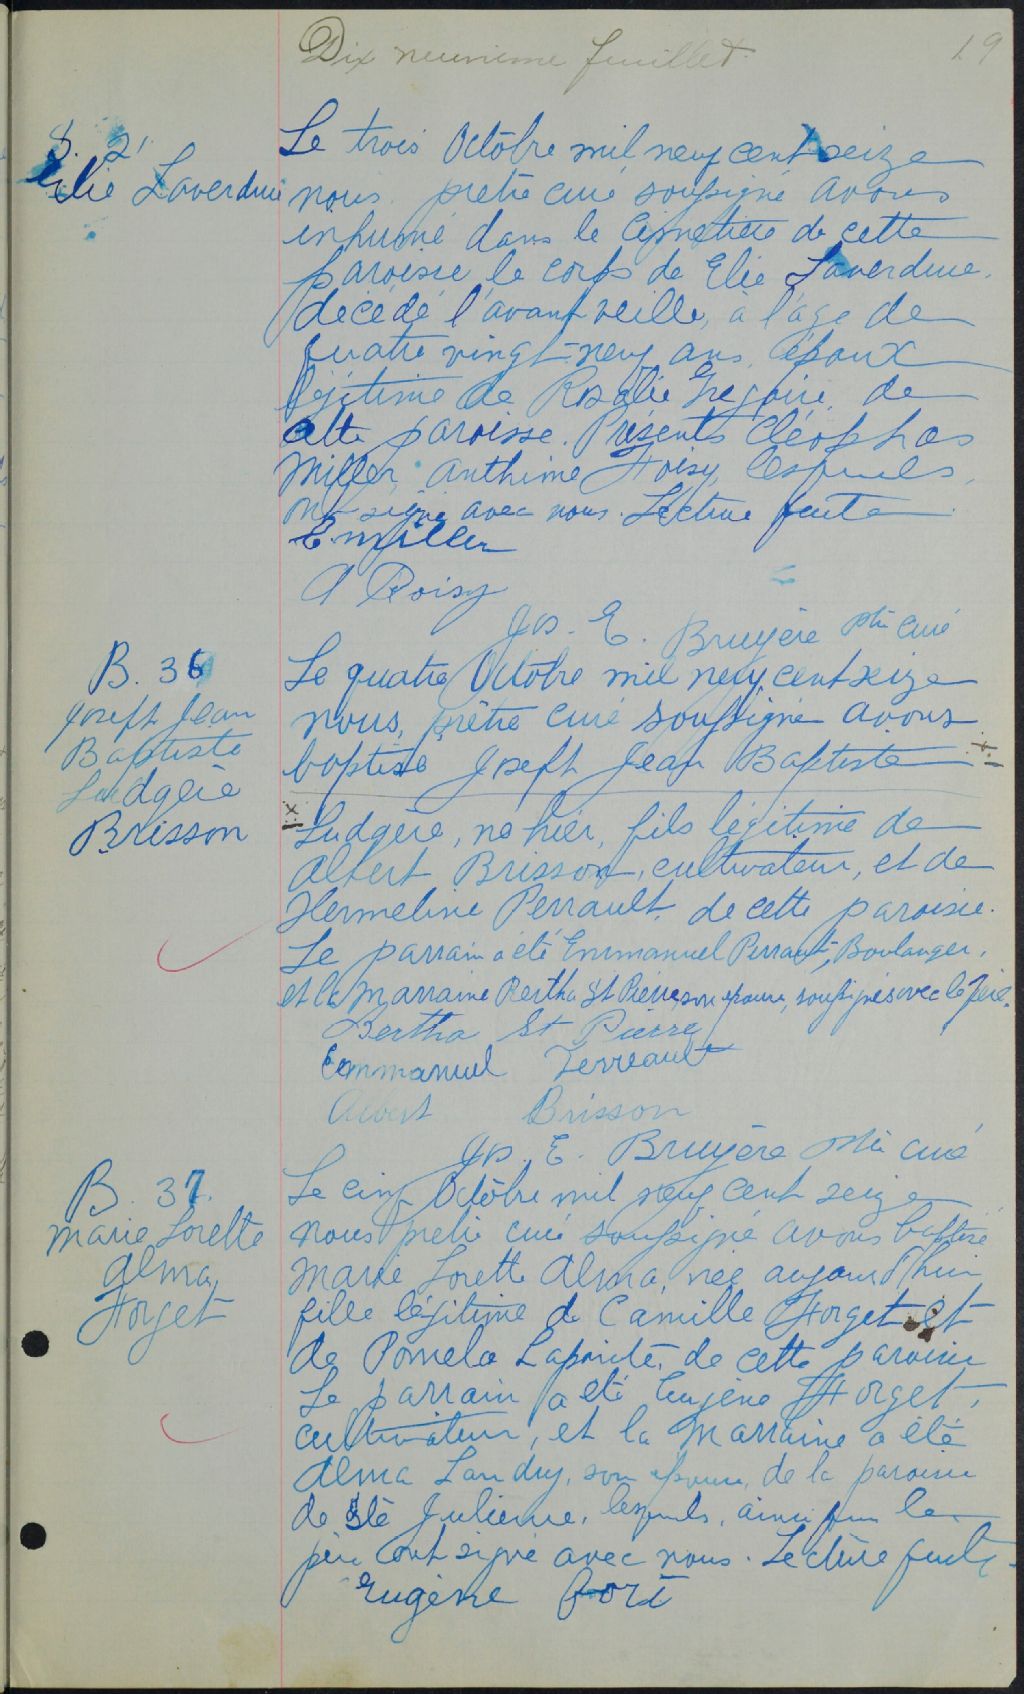 Dix neuvieme feuillet.
19
S. 21
Elie Laverdure
Le trois Octobre mil neuf cent seize
nous prêtre curé soussigné avons
inhumé dans le cimetière de cette
paroisse le corps de Elie Laverdure.
décédé l'avant veille, à l'âge de
quatre vingt-neuf ans, époux
légitime de Rosalie Gregoire de
cette paroisse. Présents Cléophas
Miller, Anthime Hoisy, lesquels,
ont signé avec nous. Lecture faite
C. Miller
A Roisy
Jos. E. Bruyère ptr curé
B. 36
Joseph Jean
Baptiste
Ludgère
Brisson
Le quatre Octobre mil neuf cent seize
nous, prêtre curé soussigné avons
baptisé Joseph Jean Baptiste
Ludgère, né hier, fils légitime de
Albert Brisson, cultivateur, et de
Hermeline Perrault, de cette paroisse.
Le parrain a été Emmanuel Perrault, Boulanger,
et la marraine Bertha St Pierre, son épouse, soussignés avec le père.
Bertha St Pierre
Emmanuel Perreault
Albert Brisson
Jos. E. Bruyère ptr curé
B. 37.
Marie Lorette
Alma
Forget
Le cinq Octobre mil neuf cent seize
nous prêtre curé soussigné avons baptisé
Marie Lorette Alma, née aujourd'hui
fille légitime de Camille Forget et
de Pomela Lapointe, de cette paroisse
Le parrain a été Eugène Forget,
cultivateur, et la marraine a été
Alma Landry, son épouse, de la paroisse
de Ste Julienne, lesquels, ainsi que le
père ont signé avec nous. Lecture faite
Eugène